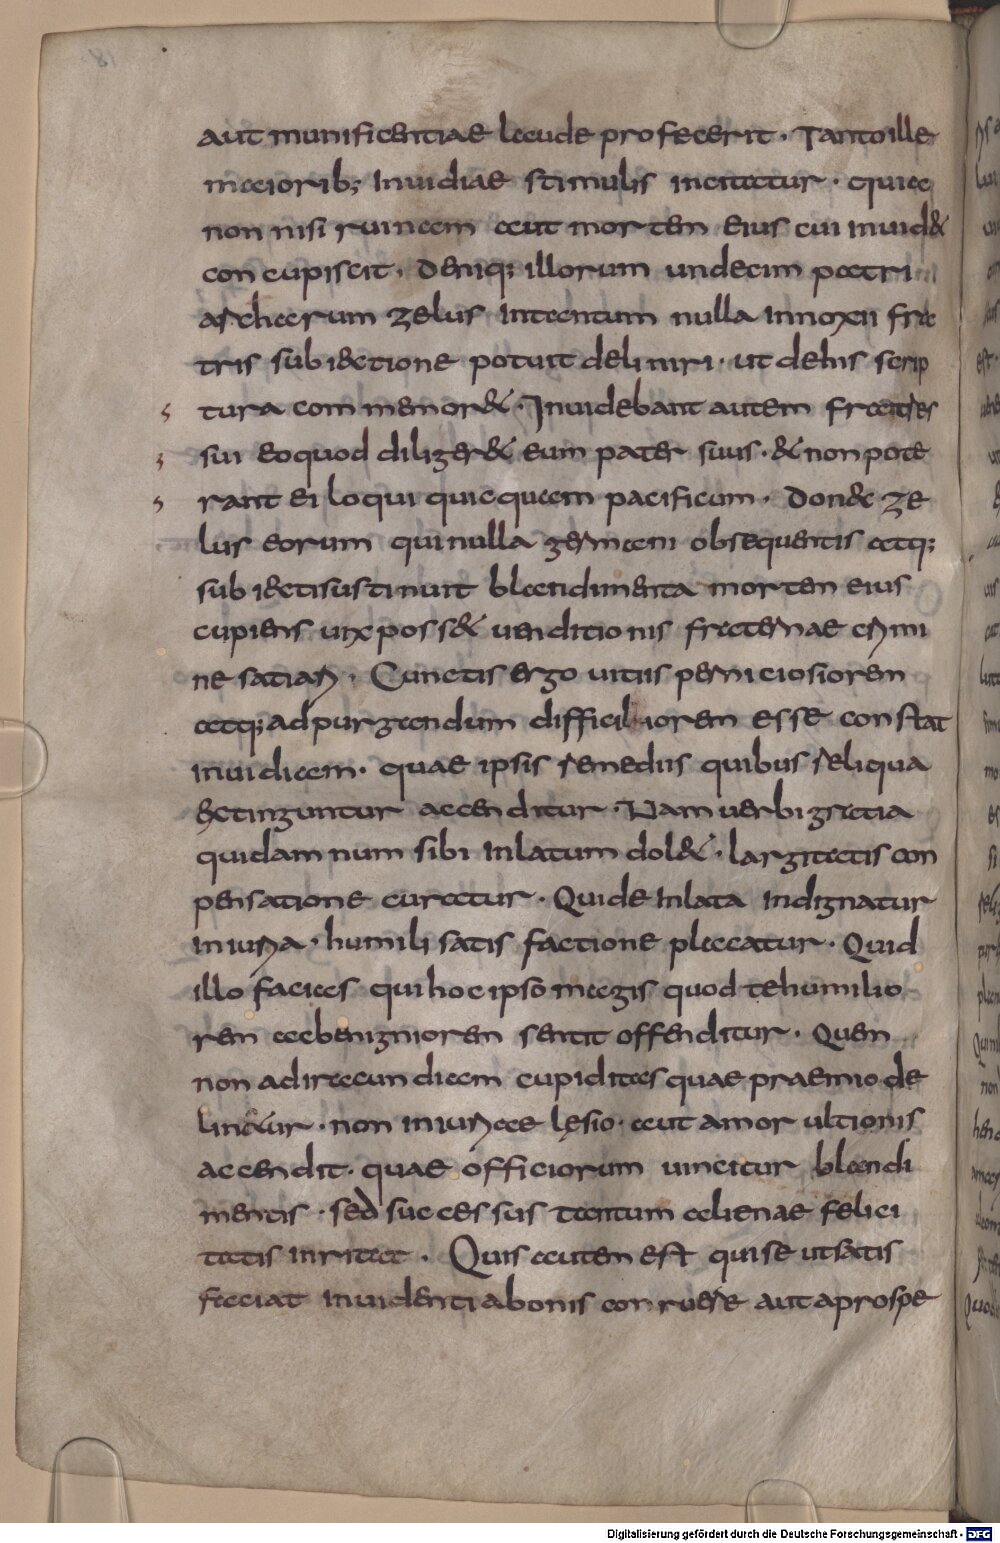 aut munificentiae laude profecerit · Tanto ille
maiorib; inuidiae stimulis incitatur · quia
non nisi ruinam aut mortem eius cui inuid&
concupiscit · Deniq; illorum undecim patri
archarum zelus in tantum nulla innoxii fra
tris subiectione potuit deliniri · ut de his scrip
tura commemor& · Inuidebant autem fratres
sui eo quod diliger& eum pater suus · & non pote
rant ei loqui quicquam pacificum · Donec ze
lus eorum qui nulla germani obsequentis atq;
subiecti sustinuit blandimenta mortem eius
cupiens uix poss& uenditionis fraternae crimi
ne satiari · Cunctis ergo uitiis perniciosiorem
atq; ad purgandum difficiliorem esse constat
inuidiam · quae ipsis remediis quibus reliqua
extinguntur accenditur · Nam uerbi gratia
qui damnum sibi inlatum dol& · largitatis con
pensatione curatur · Qui de inlata indignatur
iniuria · humili satisfactione placatur · Quid
illo facies qui hoc ipso magis quod te humilio
rem ac benigniorem sentit offenditur · Quem
non ad iracundiam cupiditas quae praemio de
lincitur · non iniuriae lęsio · aut amor ultionis
accendit · quae officiorum uincitur blandi
mentis · sed successus tantum alienae felici
tatis inritat · Quis autem est qui se ut satis
faciat inuidenti a bonis conruere aut a prospe
Digitalisierung gefördert durch die Deutsche Forschungsgemeinschaft - DFG